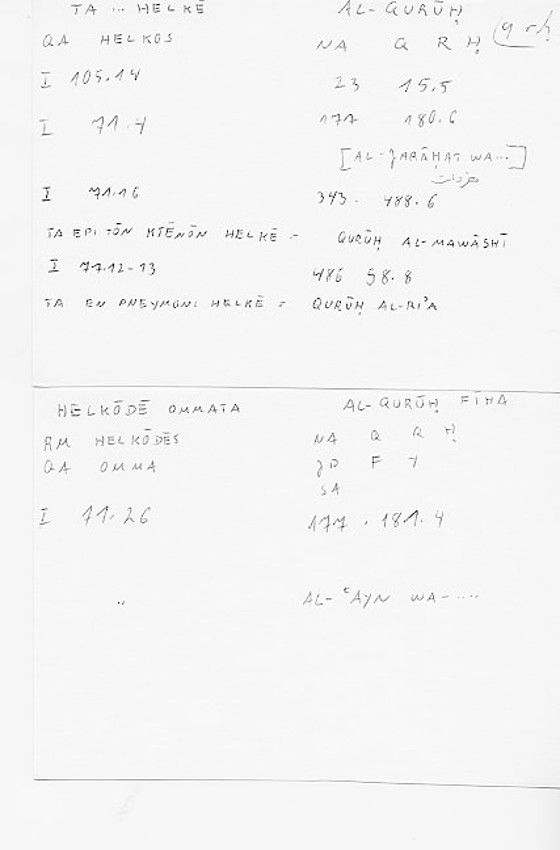 TA ... HELKĒ AL-QURŪḤ
QA HELKOS NA Q R Ḥ (qrḥ
I 105.14 23 15.5
I 71.4 177 180.6
[AL-JARĀḤAT WA...]
I 71.16 343. 488.6
TA EPI TŌN KTĒNŌN HELKĒ = QURŪḤ AL-MAWĀSHĪ
I 77.12-13 486 58.8
TA EN PNEYMONI HELKĒ = QURŪḤ AL-RI'A
HELKŌDĒ OMMATA AL-QURŪḤ FĪHA
RM HELKŌDĒS NA Q R Ḥ
QA OMMA JD F Y
SA
I 71.26 177 . 181.4
" AL-ʿAYN WA-....